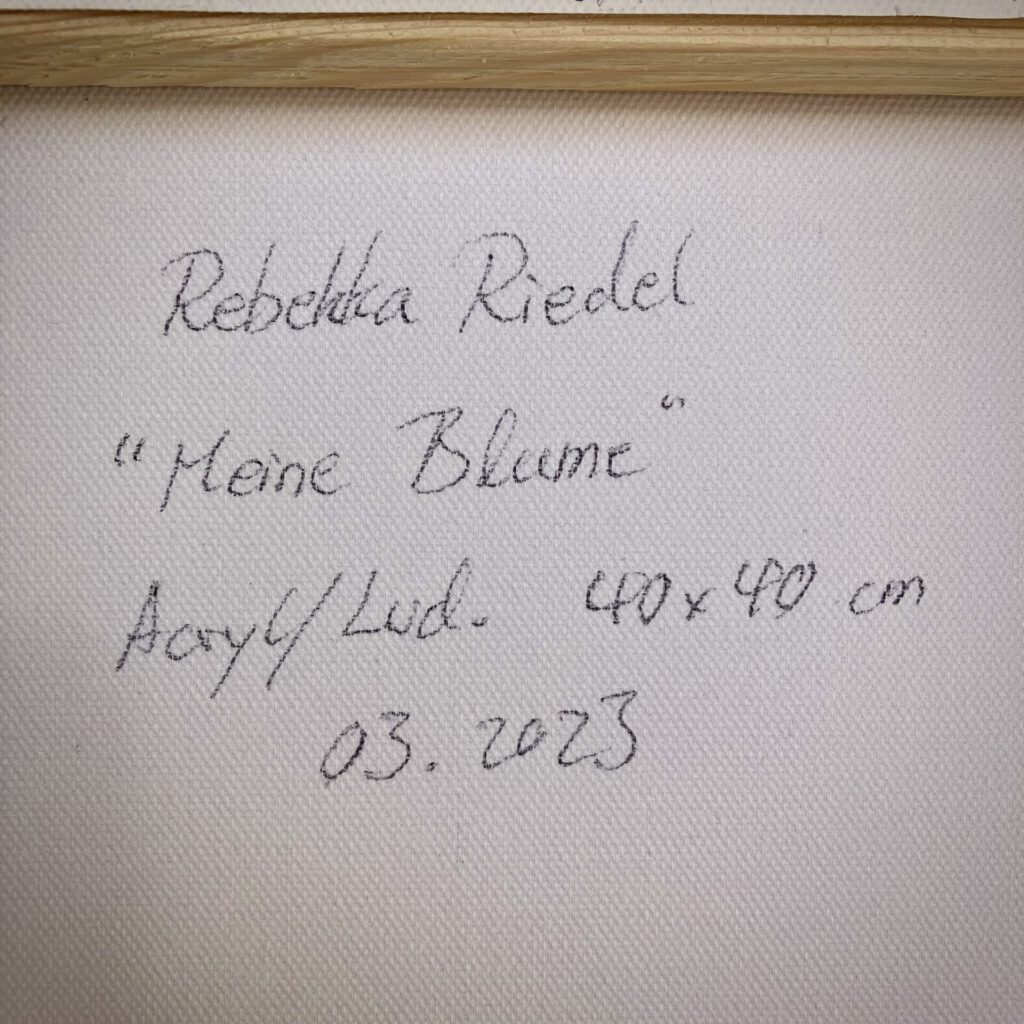 Rebekka Riedel
"Meine Blume"
Acryl/Lwd. 40x40 cm
03.2023